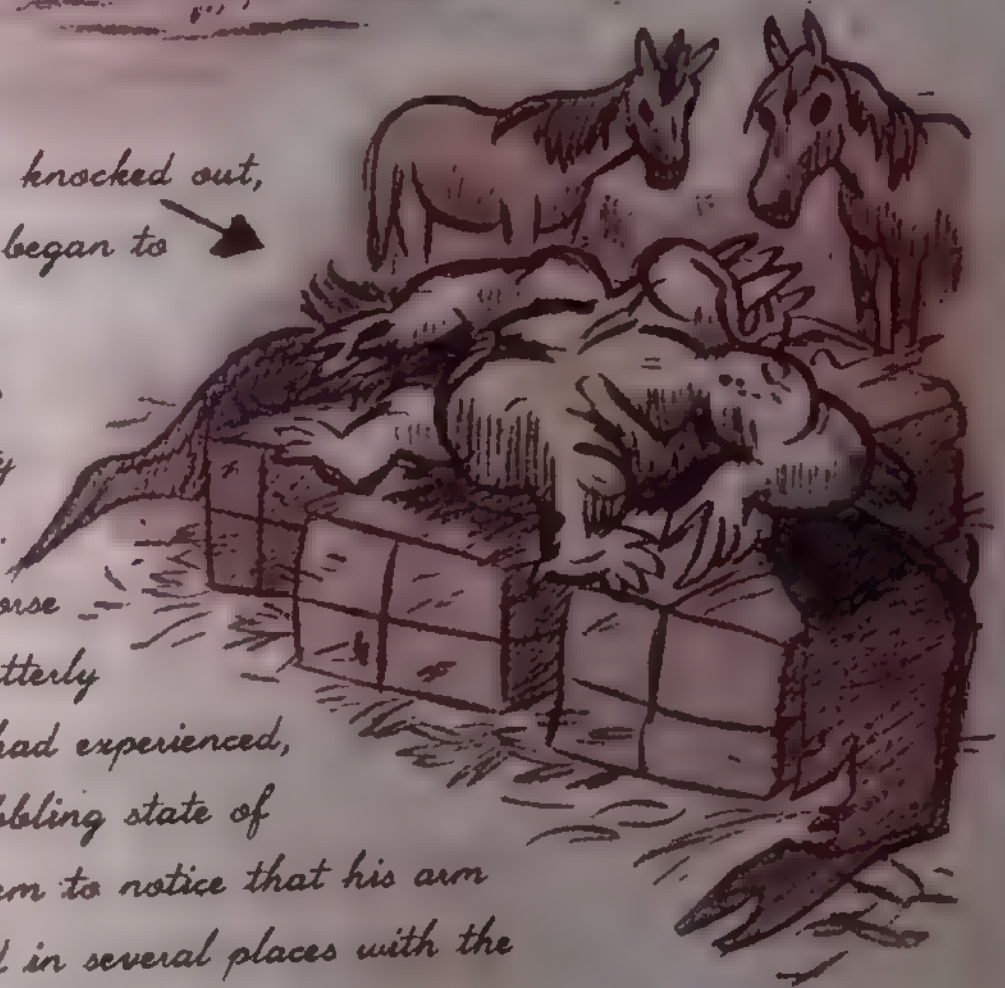 knocked out,
began to
tterly
had experienced,
bbling state of
em to notice that his arm
d in several places with the